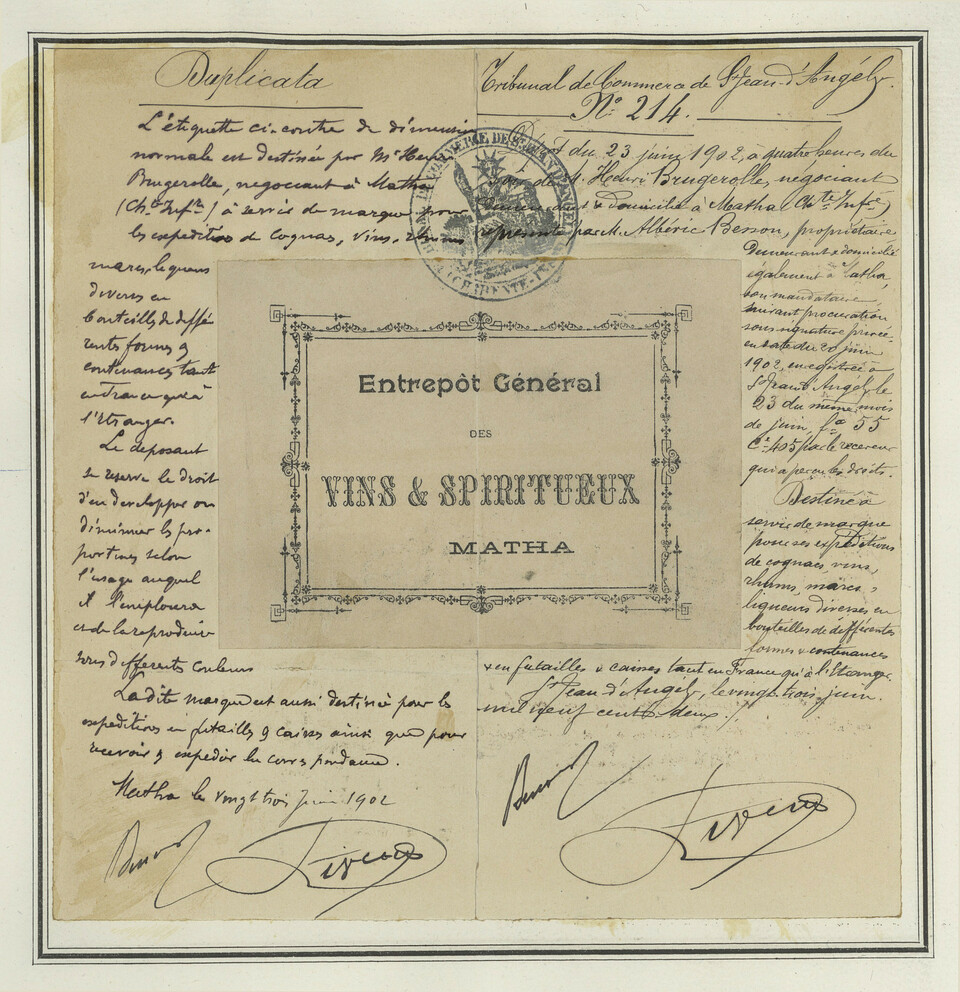 Duplicata
L'étiquette ci-contre de dimension
normale est destinée par Mr Henri
Brugerolle, negociant à Matha
(Chte Infre) à servir de marque pour
les expeditions de Cognac, vins, rhums
marcs, liqueurs
diverses en
bouteilles de diffé
rentes formes &
contenances tant
en France qu'à
l'Etranger.
Le deposant
se reserve le droit
d'en developper ou
diminuer les pro-
portions selon
l'usage auquel
il l'emploiera
et de la reproduire
sous differentes couleurs
La dite marque est aussi destinée pour les
expeditions en futailles & caisses ainsi que pour
recevoir & expedier la correspondance.
Matha le vingt trois Juin 1902
Tribunal de Commerce de St Jean-d'Angély.
No 214.
Dépôt du 23 juin 1902, à quatre heures du
soir de M. Henri Brugerolle, négociant
demeurant & domicilié à Matha (Chte Infre)
représenté par M. Albéric Besson, propriétaire
demeurant & domicilié
également à Matha,
son mandataire,
suivant procuration
sous signature privée
en date du 20 juin
1902, enregistrée à
St Jean d'Angély le
23 du même mois
de juin, fo 55
Ce 405 par le receveur
qui a perçu les droits.
Destiné à
servir de marque
pour ses expéditions
de cognacs, vins,
rhums, marcs,
liqueurs diverses en
bouteilles de différentes
formes & contenances
& en futailles & caisses tant en France qu'à l'Etranger.
St Jean d'Angély, le vingt trois juin
mil neuf cent deux.
Entrepôt Général
DES
VINS & SPIRITUEUX
MATHA